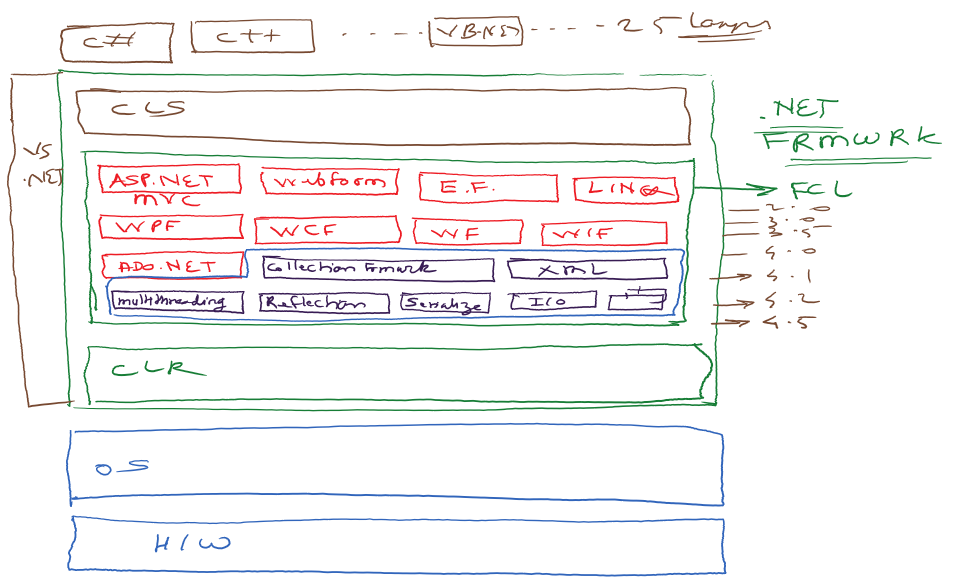 C# C++ ..... VB.NET ---- .. 25 Langs
CLS
VS
.NET
.NET
FRMWRK
ASP.NET Webform E.F. LINQ
MVC
WPF WCF WF WIF
ADO.NET Collection Frmwrk XML
multithreading Reflection Serialize I/O
FCL
2.0
3.0
3.5
4.0
4.1
4.2
4.5
CLR
OS
H/W